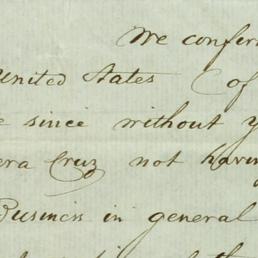 We confer
United States of
e since without y
era Cruz not havin
Business in general